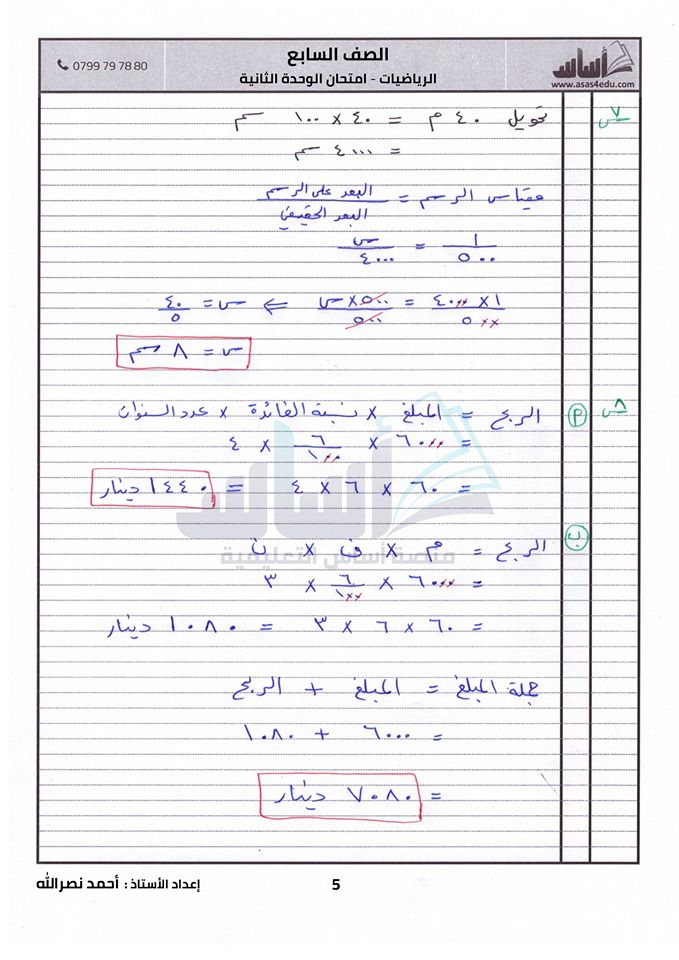 الصف السابع
الرياضيات - امتحان الوحدة الثانية
0799 79 78 80
أساس
www.asas4edu.com
س٧
تحويل ٤٠ م = ٤٠ × ١٠٠ سم
= ٤٠٠٠ سم
مقياس الرسم = البعد على الرسم / البعد الحقيقي
١/٥٠٠ = س/٤٠٠٠
١ × ٤٠٠٠/٥٠٠ = ٥٠٠ × س/٥٠٠ ⇐ س = ٤٠/٥
س = ٨ سم
س٨ (P) الربح = المبلغ × نسبة الفائدة × عدد السنوات
= ٦٠٠٠ × ٦/١٠٠ × ٤
= ٦٠ × ٦ × ٤ = ١٤٤٠ دينار
(ب) الربح = م × ف × ن
= ٦٠٠٠ × ٦/١٠٠ × ٣
= ٦٠ × ٦ × ٣ = ١٠٨٠ دينار
جملة المبلغ = المبلغ + الربح
= ٦٠٠٠ + ١٠٨٠
= ٧٠٨٠ دينار
أساس
منصة أساس التعليمية
5
إعداد الأستاذ : أحمد نصرالله